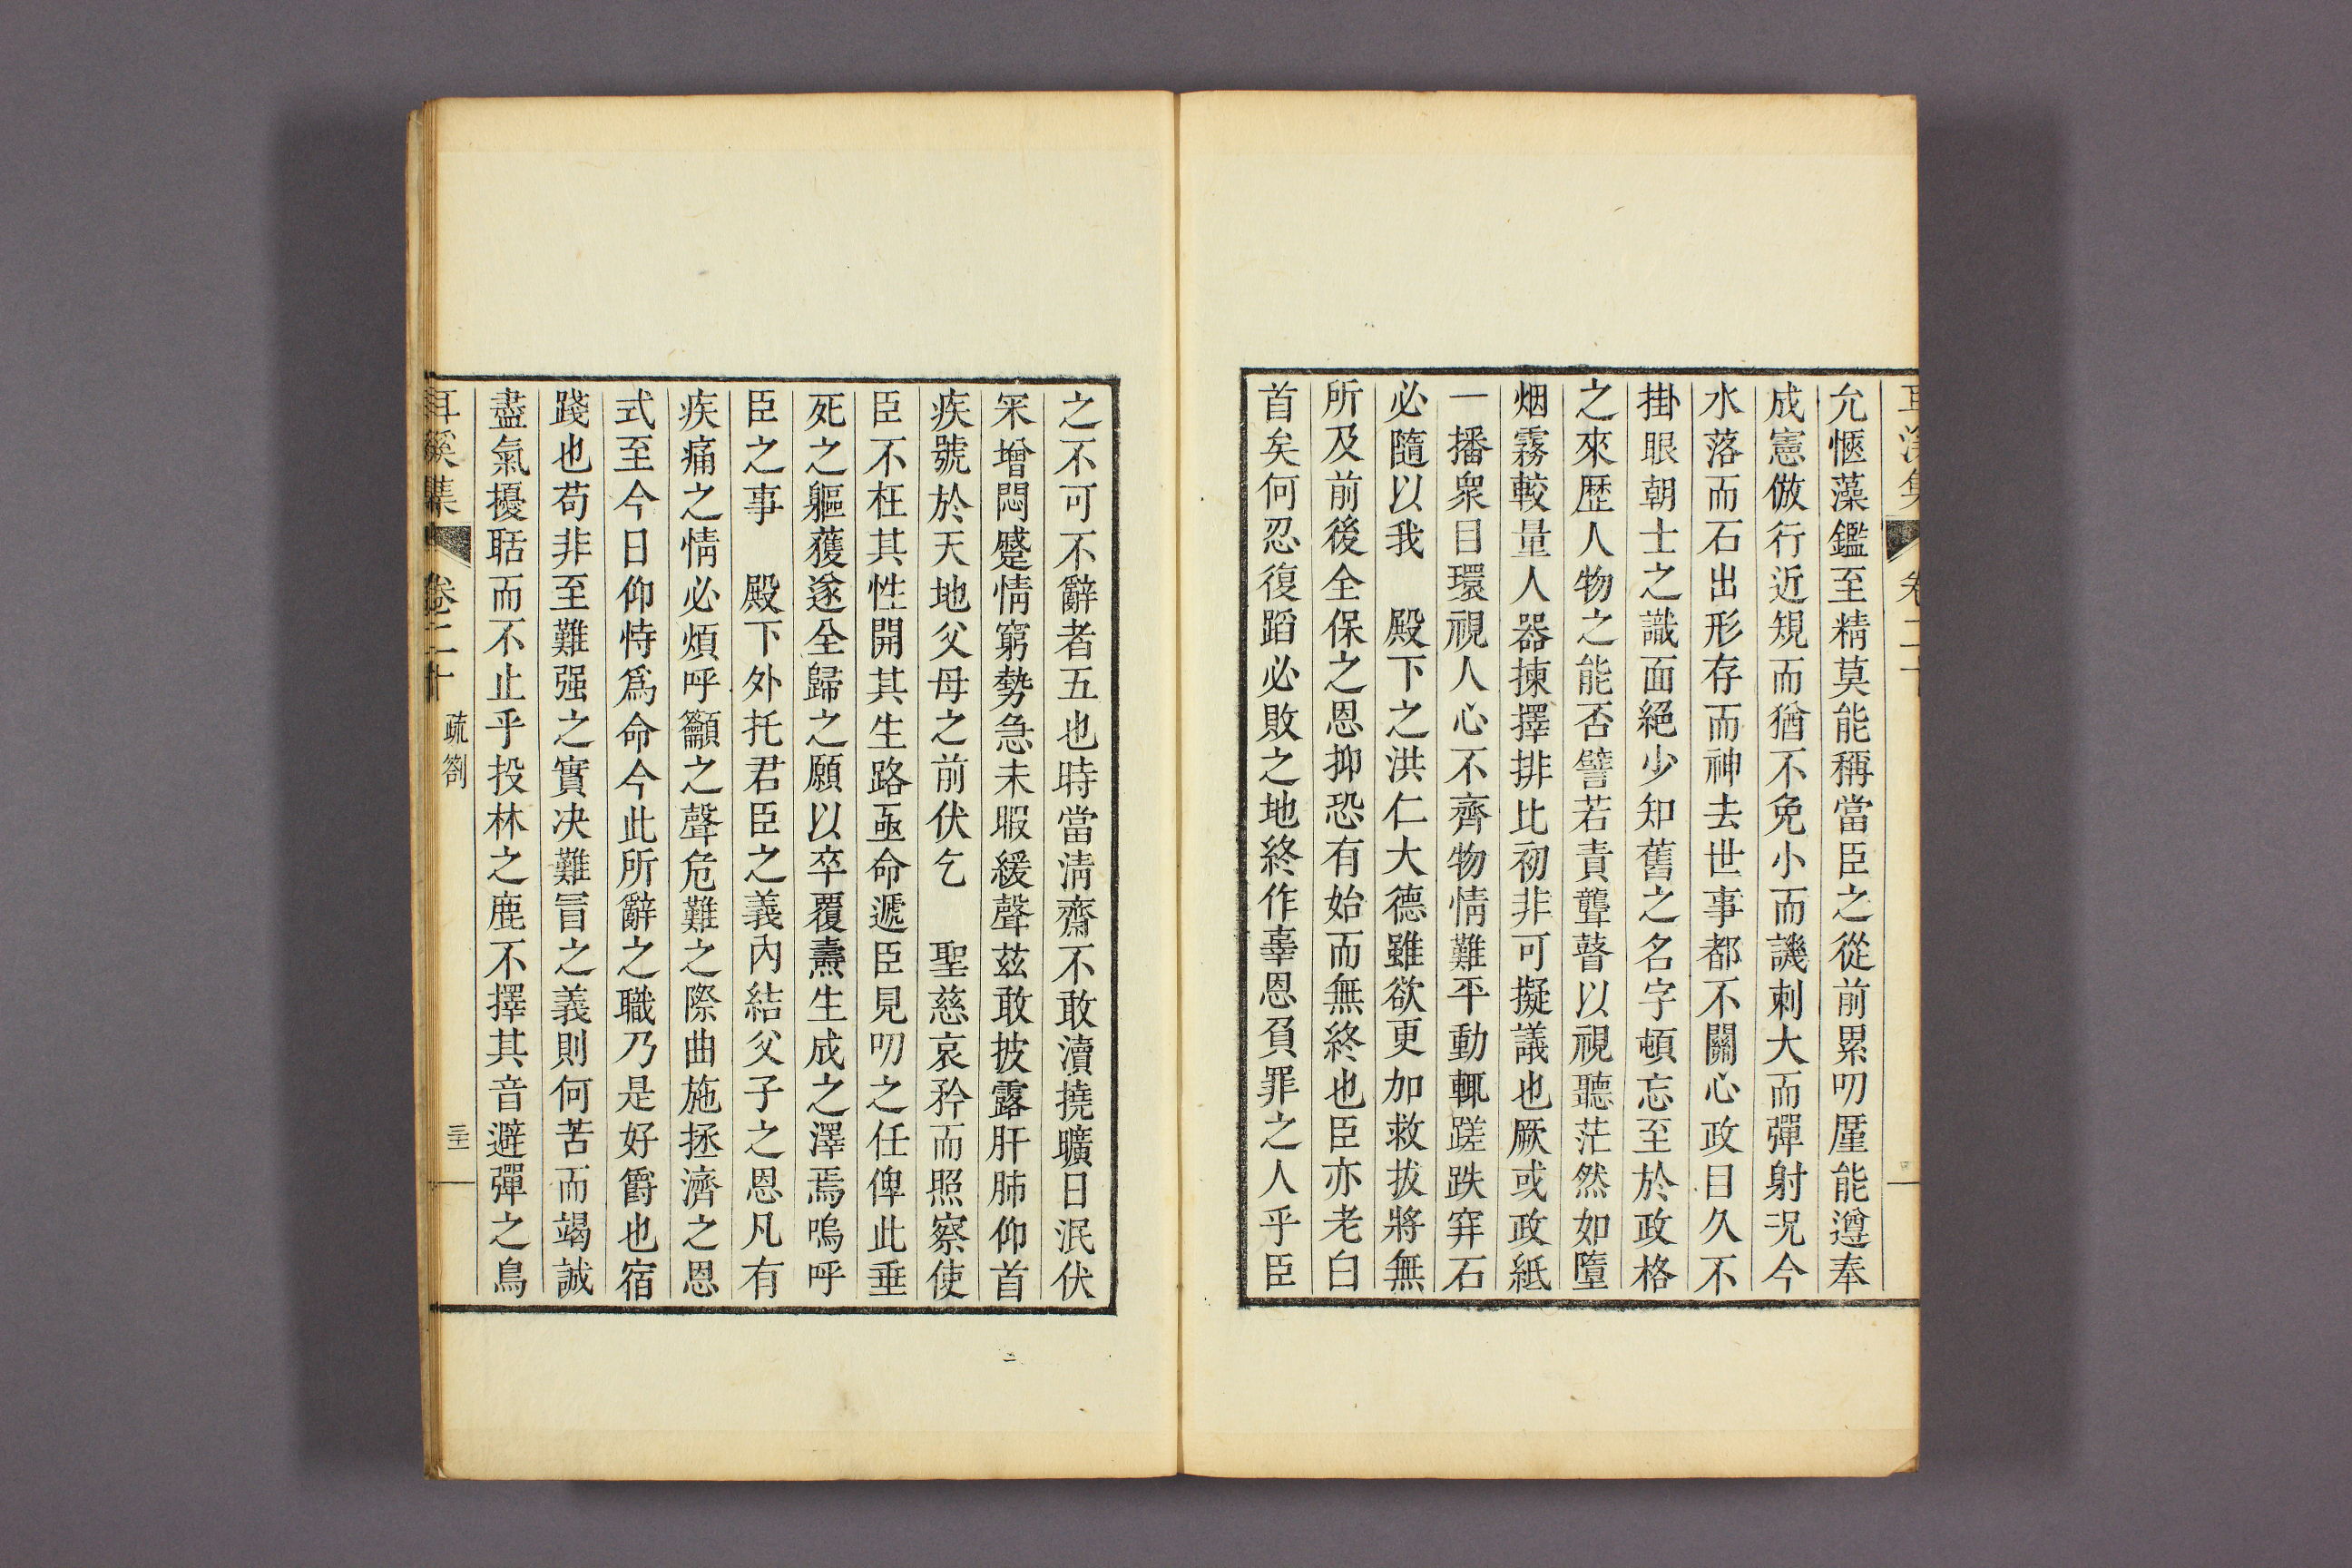 允愜藻鑑至精莫能稱當臣之從前累叨厪能遵奉
成憲倣行近規而猶不免小而譏刺大而彈射况今
水落而石出形存而神去世事都不關心政目久不
掛眼朝士之識面絕少知舊之名字頓忘至於政格
之來歷人物之能否譬若責聾瞽以視聽茫然如墮
烟霧較量人器揀擇排比初非可擬議也厥或政紙
一播衆目環視人心不齊物情難平動輒蹉跌穽石
必隨以我　殿下之洪仁大德雖欲更加救拔將無
所及前後全保之恩抑恐有始而無終也臣亦老白
首矣何忍復蹈必敗之地終作辜恩負罪之人乎臣
之不可不辭者五也時當淸齋不敢瀆撓曠日泯伏
冞增悶蹙情窮勢急未暇緩聲玆敢披露肝肺仰首
疾號於天地父母之前伏乞　聖慈哀矜而照察使
臣不枉其性開其生路亟命遞臣見叨之任俾此垂
死之軀獲遂全歸之願以卒覆燾生成之澤焉嗚呼
臣之事　殿下外托君臣之義內結父子之恩凡有
疾痛之情必煩呼籲之聲危難之際曲施拯濟之恩
式至今日仰恃爲命今此所辭之職乃是好爵也宿
踐也苟非至難强之實决難冒之義則何苦而竭誠
盡氣擾聒而不止乎投林之鹿不擇其音避彈之鳥
耳溪集　卷二十　疏箚　三十二